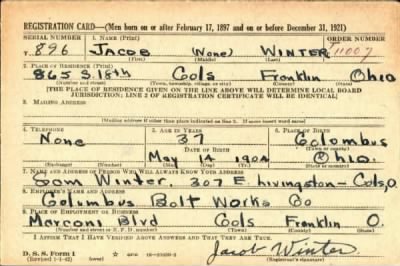 REGISTRATION CARD—(Men born on or after February 17, 1897 and on or before December 31, 1921)
SERIAL NUMBER 1. NAME (Print) ORDER NUMBER
896 JACOB (None) WINTER 11007
(First) (Middle) (Last)
2. PLACE OF RESIDENCE (Print)
865 S. 18th Cols Franklin Ohio
(Number and street) (Town, township, village, or city) (County) (State)
[THE PLACE OF RESIDENCE GIVEN ON THE LINE ABOVE WILL DETERMINE LOCAL BOARD
JURISDICTION; LINE 2 OF REGISTRATION CERTIFICATE WILL BE IDENTICAL]
3. MAILING ADDRESS
[Mailing address if other than place indicated on line 2. If same insert word same]
4. TELEPHONE 5. AGE IN YEARS 6. PLACE OF BIRTH
None 37 Columbus
DATE OF BIRTH
May 14 1904 Ohio
(Exchange) (Number) (Mo.) (Day) (Yr.) (State or country)
7. NAME AND ADDRESS OF PERSON WHO WILL ALWAYS KNOW YOUR ADDRESS
Sam Winter, 307 E. Livingston - Cols, O.
8. EMPLOYER'S NAME AND ADDRESS
Columbus Bolt Works Co
9. PLACE OF EMPLOYMENT OR BUSINESS
Marconi Blvd Cols Franklin O.
(Number and street or R. F. D. number) (Town) (County) (State)
I AFFIRM THAT I HAVE VERIFIED ABOVE ANSWERS AND THAT THEY ARE TRUE.
D. S. S. Form 1
(Revised 1-1-42) (over) Jacob Winter